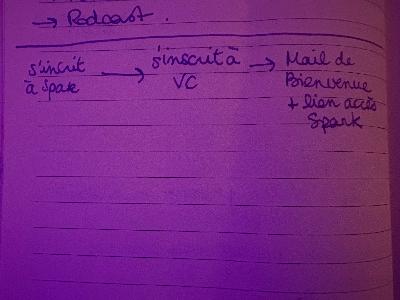 → Podcast.
s'incrit → s'inscrit à → Mail de
à Spark VC Bienvenue
+ lien accès
Spark